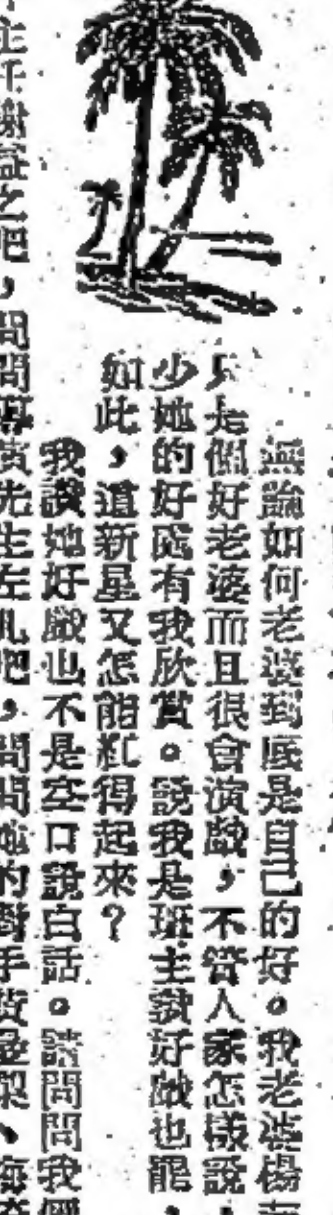 無論如何老婆到底是自己的好。我老婆楊
只是個好老婆而且很會演戲，不管人家怎樣說，
少她的好處有我欣賞。說我是班主讚好戲也罷，
如此，這新星又怎能紅得起來？
我讚她好戲也不是空口說白話。請問問我們
主任謝益之吧，問問導演先生左几吧，問問她的對手黃曼梨、梅